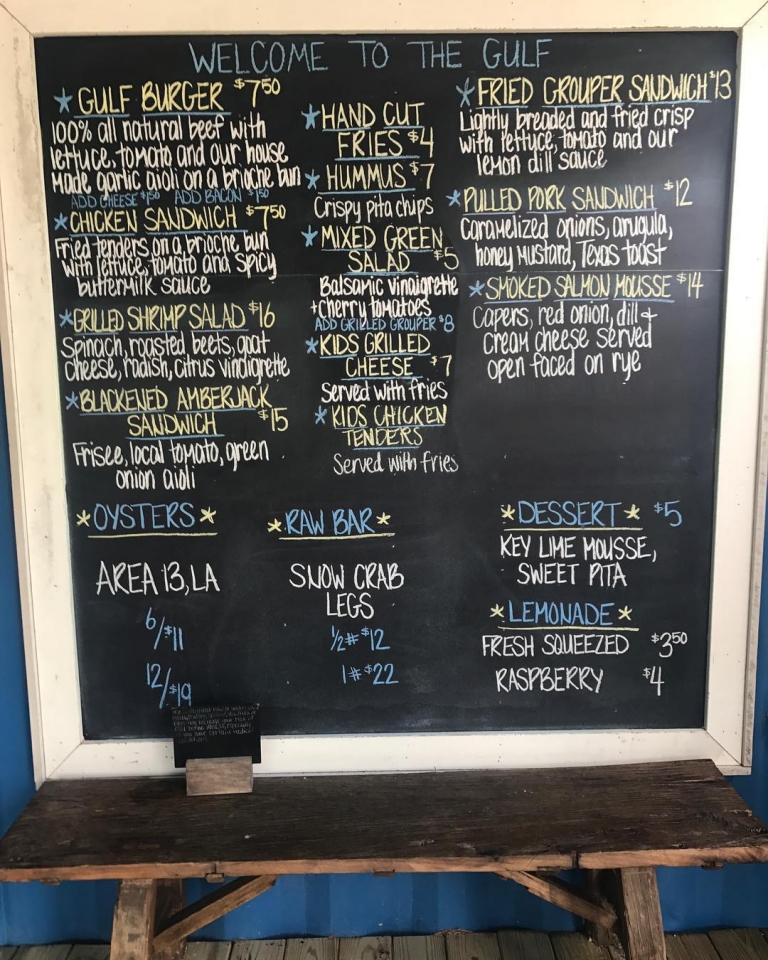 WELCOME TO THE GULF
GULF BURGER $7.50
100% all natural beef with
lettuce, tomato and our house
made garlic aioli on a brioche bun
ADD CHEESE $1.50 ADD BACON $1.50
CHICKEN SANDWICH $7.50
Fried tenders on a brioche bun
with lettuce, tomato and spicy
buttermilk sauce
GRILLED SHRIMP SALAD $16
Spinach, roasted beets, goat
cheese, radish, citrus vinaigrette
BLACKENED AMBERJACK
SANDWICH $15
Frisee, local tomato, green
onion aioli
HAND CUT
FRIES $4
HUMMUS $7
Crispy pita chips
MIXED GREEN
SALAD $5
Balsamic vinaigrette
+ cherry tomatoes
ADD GRILLED GROUPER $8
KIDS GRILLED
CHEESE $7
Served with fries
KIDS CHICKEN
TENDERS
Served with fries
FRIED GROUPER SANDWICH $13
Lightly breaded and fried crisp
with lettuce, tomato and our
lemon dill sauce
PULLED PORK SANDWICH $12
Caramelized onions, arugula,
honey mustard, Texas toast
SMOKED SALMON MOUSSE $14
Capers, red onion, dill +
cream cheese served
open faced on rye
OYSTERS
AREA 13, LA
6/$11
12/$19
RAW BAR
SNOW CRAB
LEGS
1/2# $12
1# $22
DESSERT $5
KEY LIME MOUSSE,
SWEET PITA
LEMONADE
FRESH SQUEEZED $3.50
RASPBERRY $4